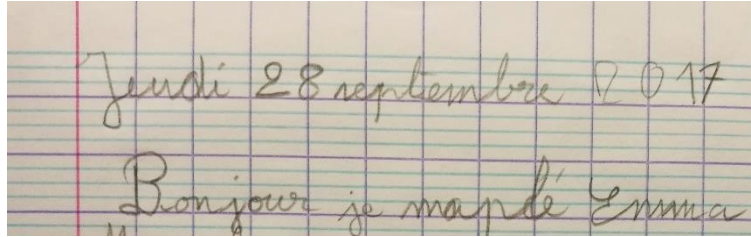 Jeudi 28 septembre 2017
Bonjour je maplé Emma